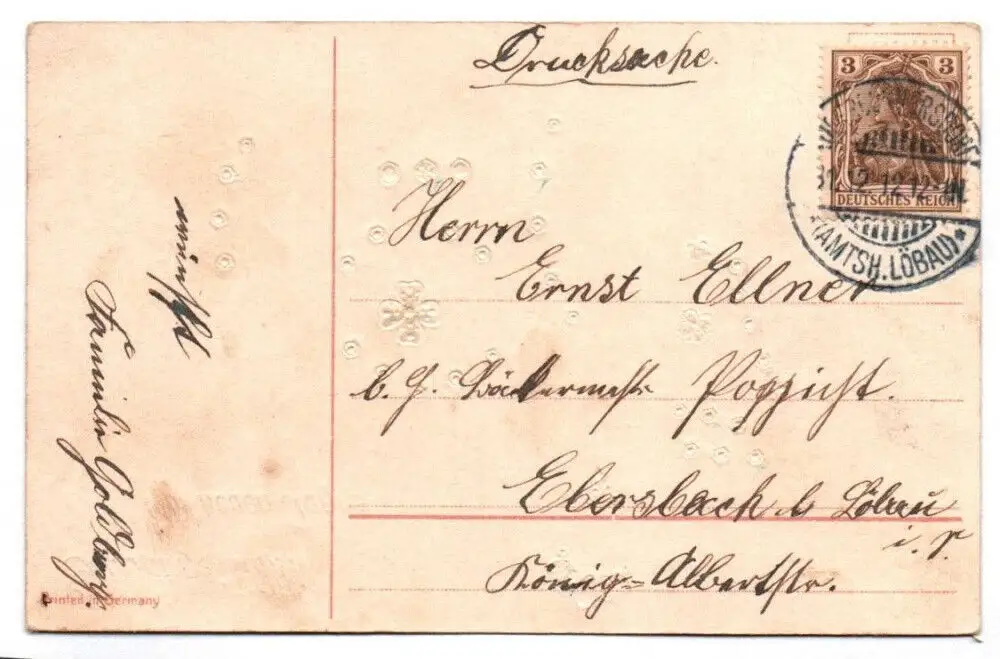 Drucksache.
3 3
DEUTSCHES REICH
31.12.12.12-1N
(AMTSH. LÖBAU) *
Herrn
Ernst Ellner
b. H. Bäckermstr.
Ebersbach b. Löbau
i. S.
König-Albertstr.
wünscht
Familie Goldberg.
Printed in Germany